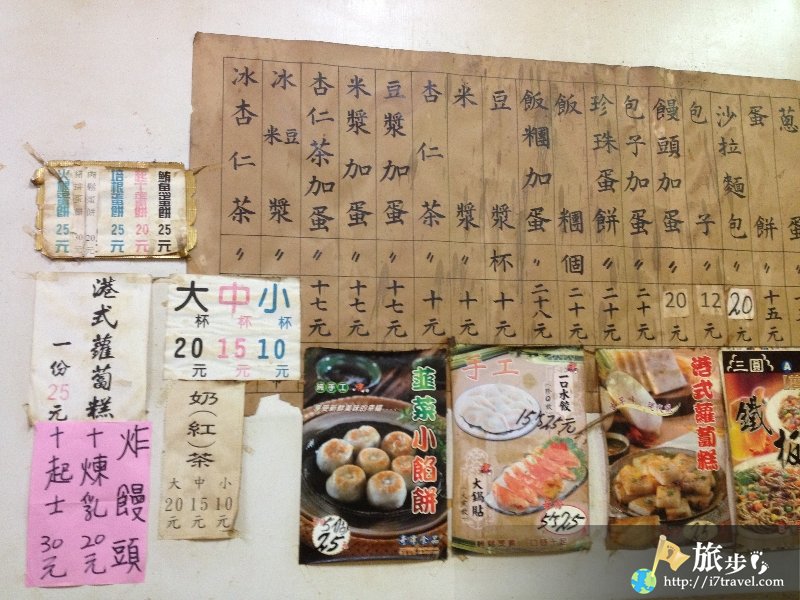 蔥
蛋
蛋餅
十五元
沙拉麵包
20
元
包子
12
元
饅頭加蛋
〃
20
元
包子加蛋
〃
二十元
珍珠蛋餅
〃
二十元
飯糰
個
二十元
飯糰加蛋
〃
二十八元
豆漿
杯
十元
米漿
〃
十元
杏仁茶
〃
十元
豆漿加蛋
〃
十七元
米漿加蛋
〃
十七元
杏仁茶加蛋
〃
十七元
冰豆米漿
〃
冰杏仁茶
〃
鮪魚蛋餅 25元
20元
培根蛋餅 25元
20元
30元
火腿蛋餅 25元
大杯 20元
中杯 15元
小杯 10元
港式蘿蔔糕
一份25元
奶(紅)茶
大 20元
中 15元
小 10元
炸饅頭
十煉乳20元
十起士30元
純手工
韭菜小餡餅
25
香津食品
手工
一口水餃
15元25元
大鍋貼
5元25
港式蘿蔔糕
三圓
A
鐵板
旅步
http://i7travel.com/